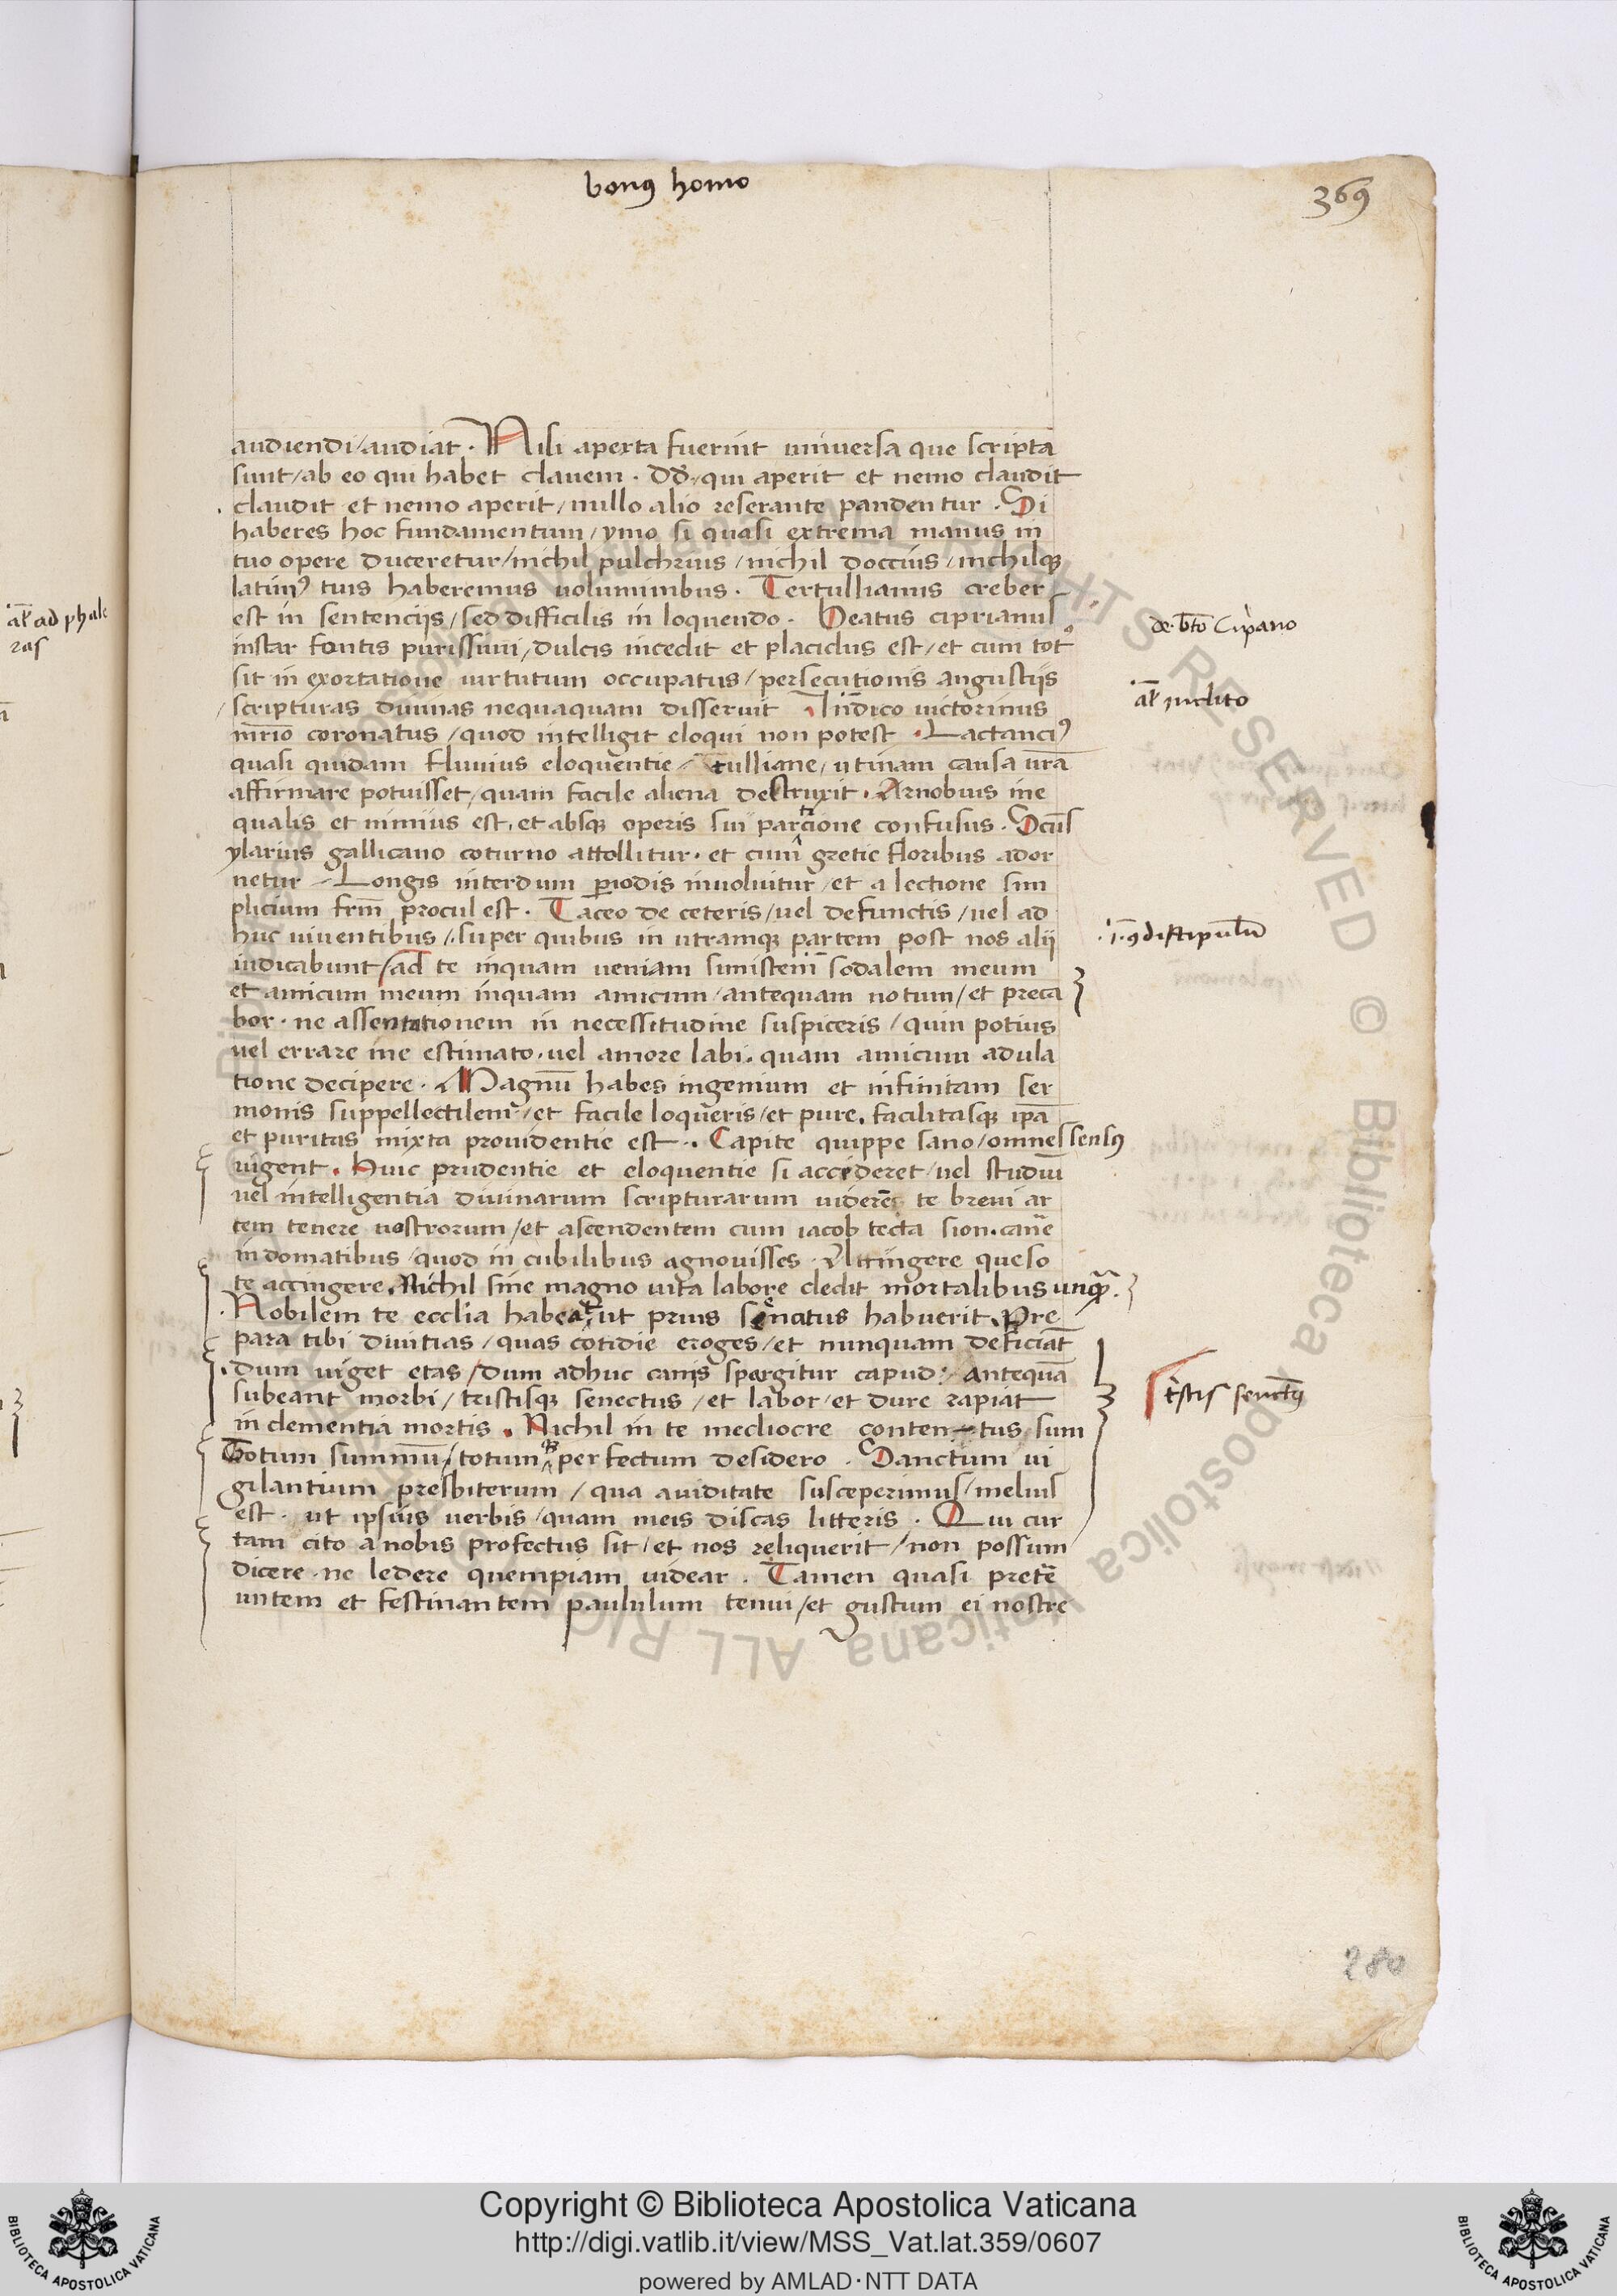 bonꝰ homo
369
audiendi / audiat. Nisi aperta fuerint universa que scripta
sunt / ab eo qui habet clavem. dd̄ / qui aperit et nemo claudit
claudit et nemo aperit / nullo alio reserante pandentur. Si
haberes hoc fundamentum / ymo si quasi extrema manus in
tuo opere duceretur / nichil pulchrius / nichil doccius / nichilqꝫ
latiniꝰ tuis haberemus voluminibus. Tertullianus creber
est in sentenciis / sed difficilis in loquendo. Beatus ciprianus
instar fontis purissimi / dulcis incedit et placidus est / et cum totꝰ
sit in exortatione virtutum occupatus / persecutionis angustiis
scripturas divinas nequaquam disseruit Indico victorinus
mr̄rio coronatus / quod intelligit eloqui non potest. Lactanciꝰ
quasi quidam fluvius eloquentie tulliane / utinam causa nr̄a
affirmare potuisset / quam facile aliena destruxit. Arnobius ine
qualis et nimius est. et absqꝫ operis sui parcione confusus. Scūs
ylarius gallicano coturno attollitur. et cum gretie floribus ador
netur Longis interdum ꝑiodis involuitur / et a lectione sim
plicium frm̄ procul est. Taceo de ceteris / vel defunctis / vel ad
huc viventibus / super quibus in utramqꝫ partem post nos alii
iudicabunt / ad te inquam veniam sodalem meum
et amicum meum inquam amicum / antequam notum / et preca
bor. ne assentationem in necessitudine suspiceris / quin potius
vel errare me estimato. vel amore labi. quam amicum adula
tione decipere. Magnū habes ingenium et infinitam ser
monis suppellectilem / et facile loqueris / et pure. facilitasqꝫ ip̄a
et puritas mixta providentie est. Capite quippe sano / omnes sensꝰ
vigent. Huic prudentie et eloquentie si accideret / vel studiū
vel intelligentia divinarum scripturarum viderē te brevi ar
tem tenere nostrorum / et ascendentem cum iacob tecta sion. canē
in domatibus / quod in cubilibus agnovisses. Accingere queso
te accingere. Nichil sine magno vita labore dedit mortalibus unqꝫ.
Nobilem te ecclīa habeat ut prius senatus habuerit. Pre
para tibi divitias / quas cotidie eroges / et nunquam deficiāt
dum viget etas / dum adhuc canis spargitur capud: Antequā
subeant morbi / tristisqꝫ senectus / et labor / et dure rapiat
inclementia mortis. Nichil in te mediocre contentus sum
Totum summū / totum perfectum desidero. Sanctum vi
gilantium presbiterum / qua aviditate susceperimus / melius
est. ut ipsius verbis / quam meis discas litteris. Qui cur
tam cito a nobis profectus sit / et nos reliquerit / non possum
dicere. ne ledere quempiam videar. Tamen quasi pretē
untem et festinantem paululum tenui / et gustum ei nostre
al̄ ad phale
ras
de. bt̄o Cip̄ano
al̄ inclito
tristis senectꝰ
280
Copyright © Biblioteca Apostolica Vaticana
http://digi.vatlib.it/view/MSS_Vat.lat.359/0607
powered by AMLAD·NTT DATA
BIBLIOTECA APOSTOLICA VATICANA
BIBLIOTECA APOSTOLICA VATICANA